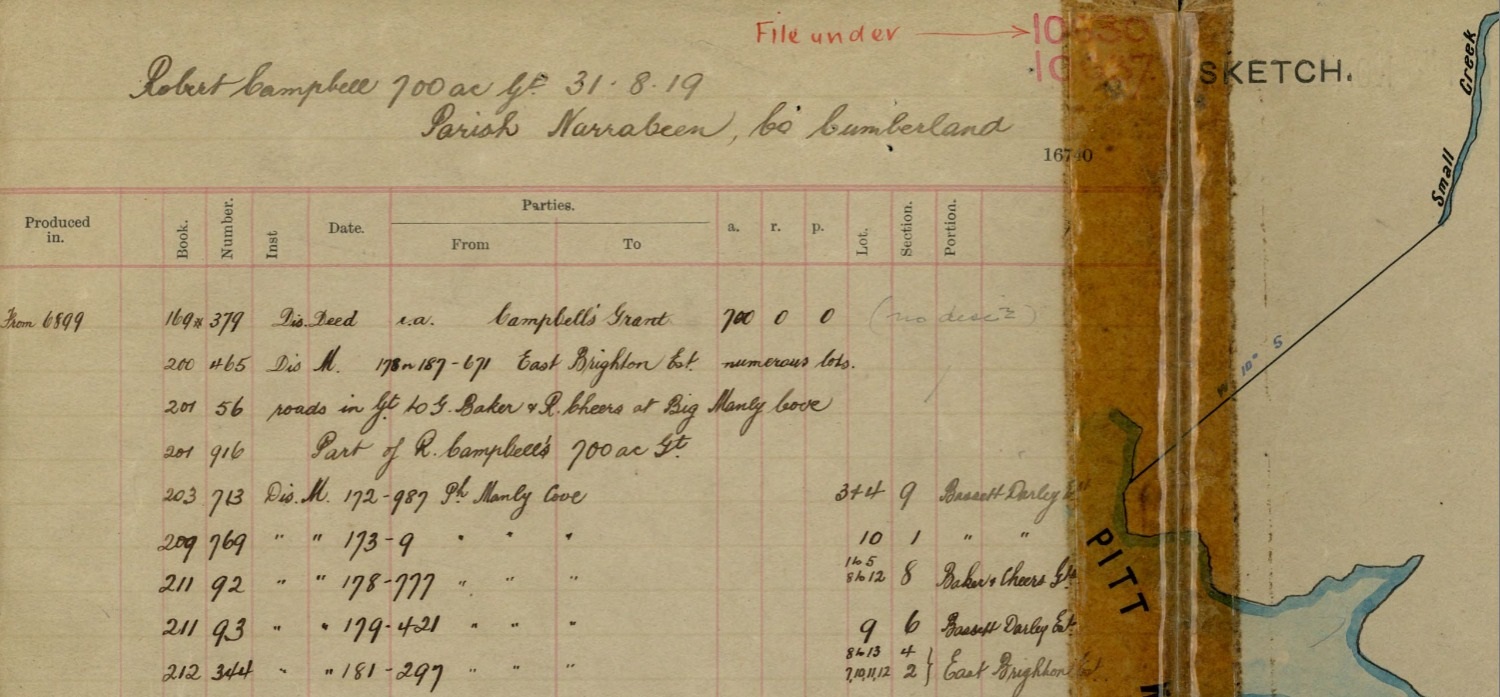 File under → 10
SKETCH.
Robert Campbell 700 ac Gt 31·8·19
Parish Narrabeen, Co Cumberland
16740
Produced in. Book. Number. Inst Date. Parties. From To a. r. p. Lot. Section. Portion.
From 6899 169 379 Dis. Deed i.a. Campbell's Grant 700 0 0
200 465 Dis M. 187-671 East Brighton Est. numerous lots.
201 56 roads in Gt to G. Baker & R. Cheers at Big Manly Cove
201 916 Part of R. Campbell's 700 ac Gt
203 713 Dis. M. 172-987 Ph Manly Cove 3+4 9 Bassett Darley Est
209 769 " " 173-9 " " " 10 1 " "
211 92 " " 178-777 " " " 1to5 8to12 8 Baker & Cheers Gts
211 93 " " 179-421 " " " 9 6 Bassett Darley Est
212 344 " " 181-297 " " " 8to13 4 7,10,11,12 2 } East Brighton Est.
Small Creek
10° S
PITT W